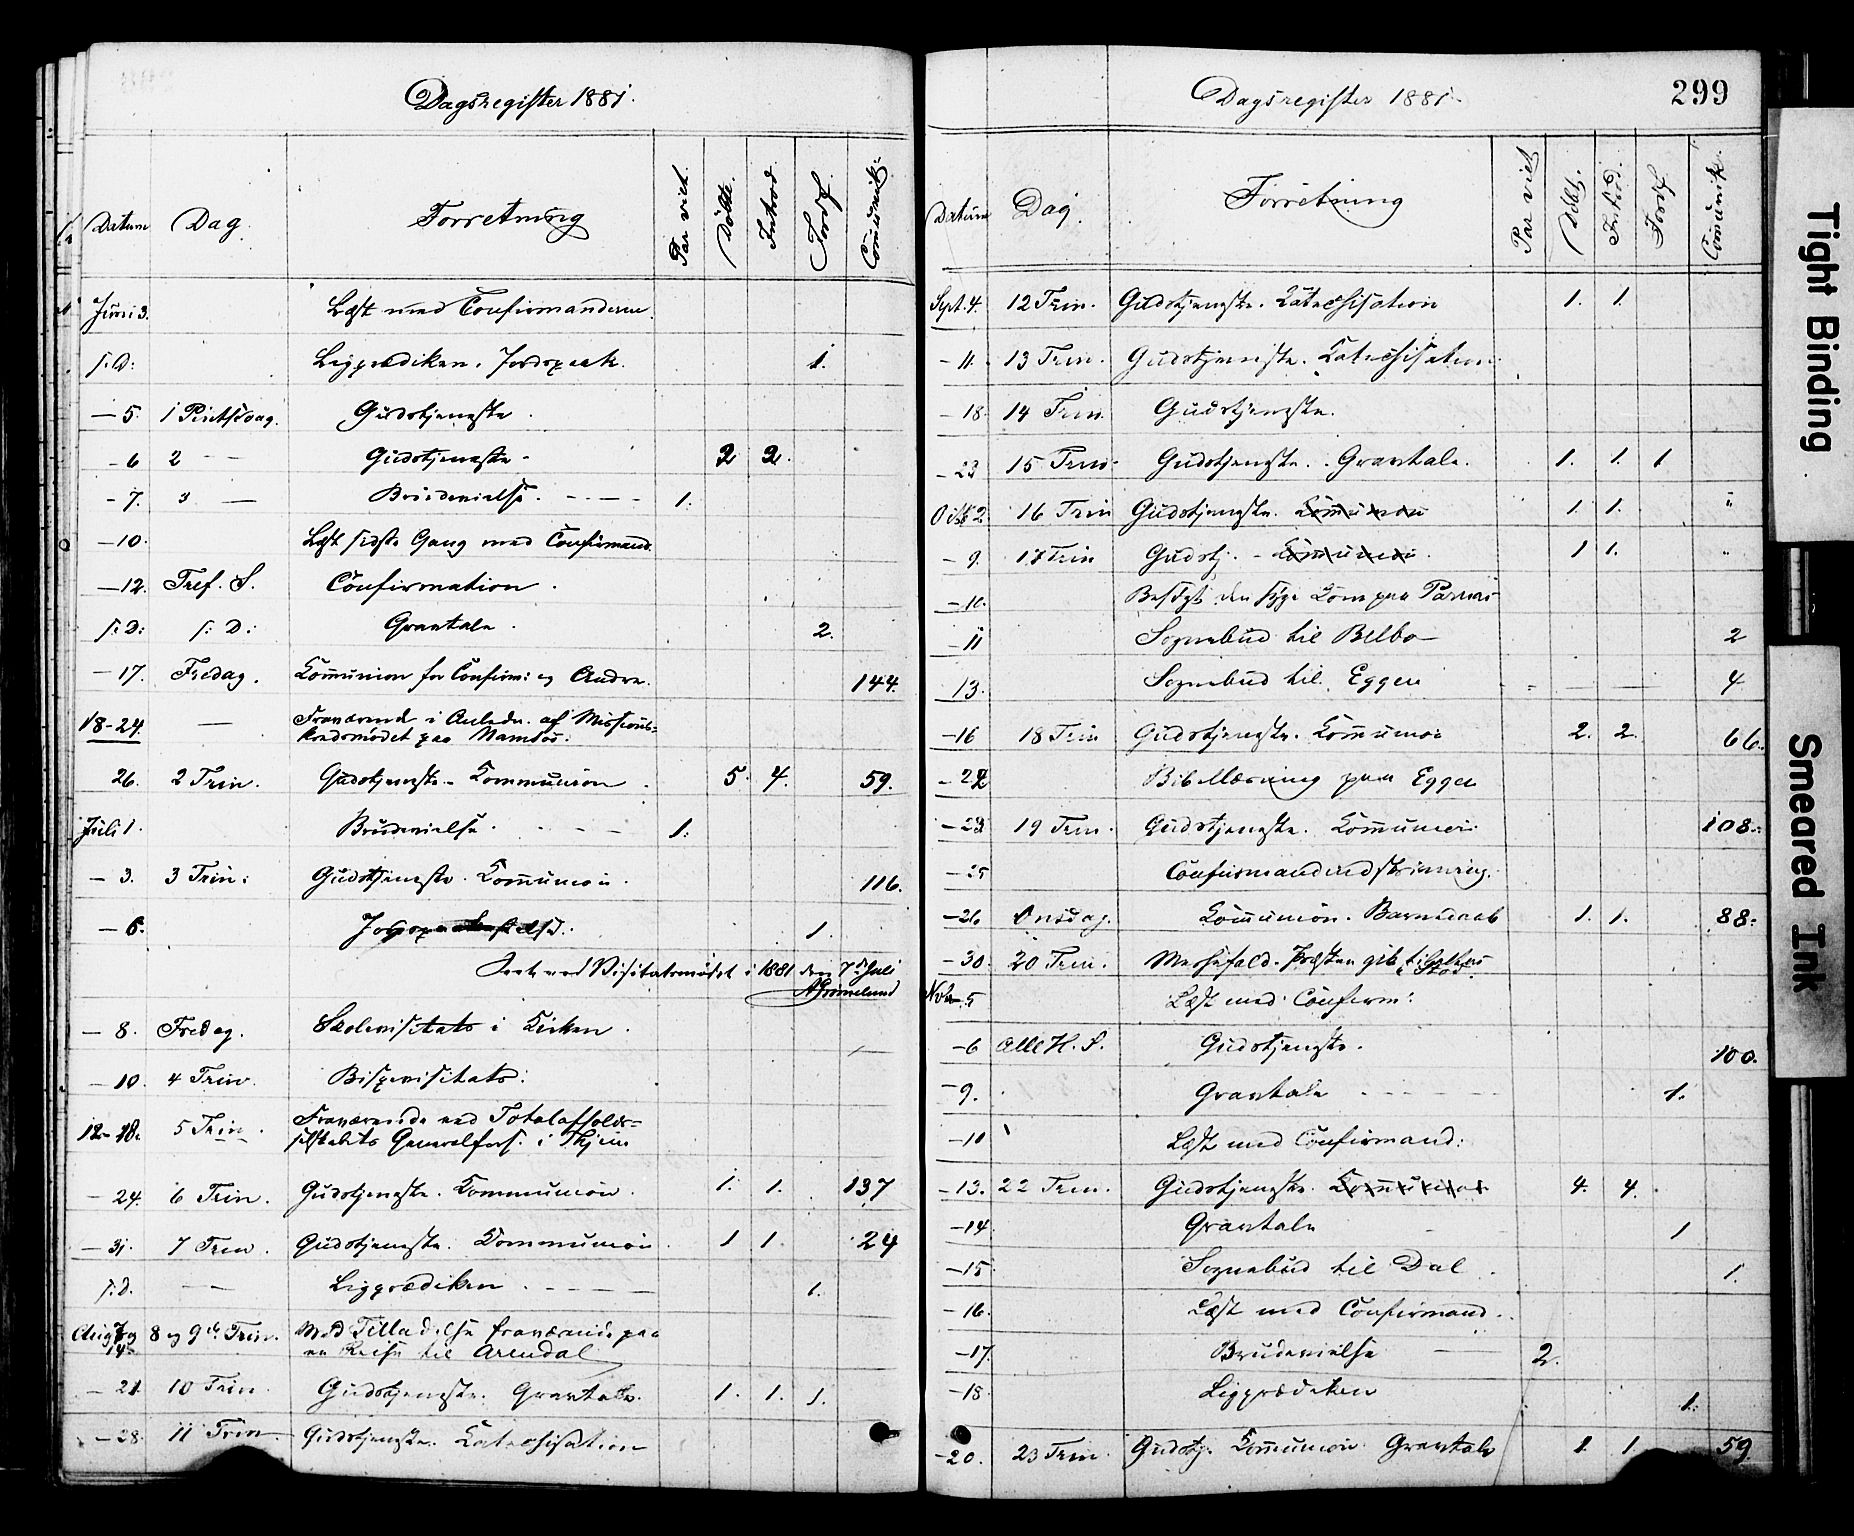 Dagsregister 1881.
Datum Dag Forretning Par viet. Döbte. Introd. Jordf. Comunik.
Juni 3. Læst med Confirmanderne.
s. D: Ligprædiken. Jordspaak. 1.
– 5. 1 Pintsdag. Gudstjeneste.
– 6 2 – – Gudstjeneste – 2 2.
– 7. 3 — Brudevielse. – – – – 1.
– 10. Læst sidste Gang med Confirmand.
– 12. Tref. S. Confirmation.
s: D: s: D: Gravtale. 2.
– 17. Fredag. Communion for Confirm: og Andre. 144.
18-24. — Fraværende i Anledn. af Missions-
kredsmödet paa Namsos.
26. 2 Trin. Gudstjeneste – Kommunion. 5. 4. 59.
Juli 1. Brudevielse. – – – – 1.
– 3. 3 Trin: Gudstjeneste. Kommunion. 116.
– 6. 1.
ved Visitatsmödet i 1881 den 7de Juli
A Grimelund
– 8. Fredag. Skolevisitats i Kirken. —
– 10. 4 Trin. Bispevisitats:
12-18. 5 Trin. Fraværende ved Totalafholds-
selskabets Generalfors. i Thjem
– 24. 6 Trin. Gudstjeneste. Kommunion. 1. 1. 137
– 31. 7 Trin. Gudstjeneste. Kommunion. 1 1. 24
s. D. — Ligprædiken. – – – – 1.
Aug 7 og 8 og 9de Trin. Med Tilladelse fraværende paa
14 en Reise til Arendal
– 21. 10 Trin. Gudstjeneste. Gravtale. 1. 1. 1.
– 28. 11 Trin. Gudstjeneste. Katechisation
Dagsregister 1881. 299
Datum Dag Forretning Par viet Döbt. Introd. Jordf. Comunik.
Sept. 4. 12 Trin. Gudstjeneste. Katechisation 1. 1.
– 11. 13 Trin. Gudstjeneste. Katechisation.
– 18. 14 Trin. Gudstjeneste.
– 23 15 Trin. Gudstjeneste. Gravtale. 1. 1. 1
Oct 2 16 Trin Gudstjeneste. Kommunion 1. 1. "
– 9. 17 Trin Gudstj. – Kommunion. 1 1. "
– 10. Besögt den syge Kone paa
– 11 Sognebud til Belbo – 2
13. Sognebud til Eggen – — 4
– 16 18 Trin Gudstjeneste. Kommunion 2. 2. 66.
– 22 Bibellæsning paa Eggen
– 23 19 Trin. Gudstjeneste. Kommunion 108.
– 25 Confirmandindskrivning.
– 26. Onsdag. Kommunion. Barnedaab 1. 1. 88.
– 30. 20 Trin. Messefald. Præsten gik til
Stod.
Novbr. 5 Læst med Confirm:
– 6 Alle H. S. Gudstjeneste. 100.
– 9. Gravtale – – – – 1.
– 10 Læst med Confirmand:
– 13. 22 Trin. Gudstjeneste. Kommunion 4. 4.
– 14. Gravtale 1
– 15. Sognebud til Dal. 1.
– 16. Læst med Confirmand.
– 17. Brudevielse — 2.
– 18. Ligprædiken 1.
– 20. 23 Trin. Gudstj. Kommunion Gravtale 1. 1. 59.
Tight Binding
Smeared Ink